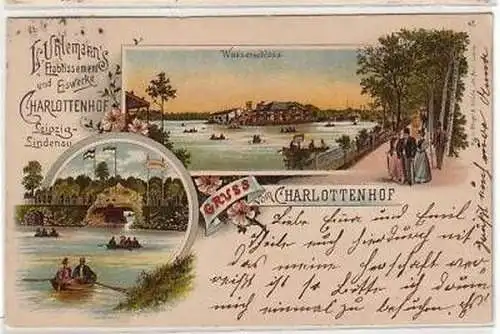 L. Uhlemann's
Etablissement
und Eiswerke
CHARLOTTENHOF
Leipzig-
Lindenau
Wasserschloss
GRUSS
vom CHARLOTTENHOF
Liebe Ema und Emil
Teile euch hierdurch mit
das meine Herschaft ver-
reißt ist so bitte ich dann
mich einmal zu besuchen